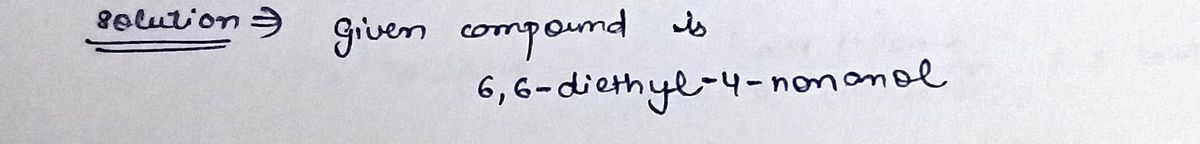 solution ⇒ given compound is
6,6-diethyl-4-nonanol